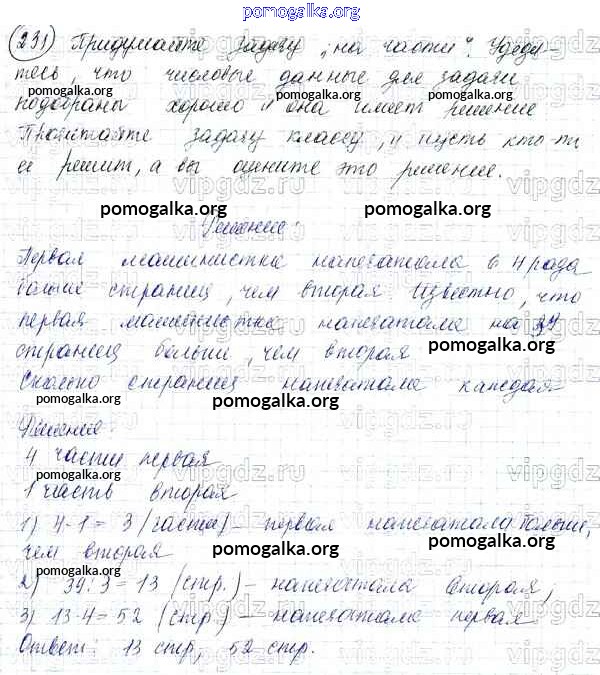 pomogalka.org
231) Придумайте задачу „на части". Убеди-
тесь, что числовые данные для задачи
подобраны хорошо и она имеет решение
pomogalka.org
pomogalka.org
Прочитайте задачу классу, и пусть кто-то
её решит, а вы оцените это решение.
vipgdz.ru
pomogalka.org
pomogalka.org
Решение:
Первая машинистка напечатала в 4 раза
больше страниц, чем вторая. Известно, что
pomogalka.org
первая машинистка напечатала на 39
страниц больше, чем вторая
pomogalka.org
Сколько страниц напечатала каждая
pomogalka.org
Решение:
4 части первая
pomogalka.org
1 часть вторая
1) 4-1 = 3 (части) – первая напечатала больше,
чем вторая
pomogalka.org
2) 39:3 = 13 (стр.) – напечатала вторая,
pomogalka.org
3) 13·4 = 52 (стр) – напечатала первая
pomogalka.org
Ответ: 13 стр, 52 стр.